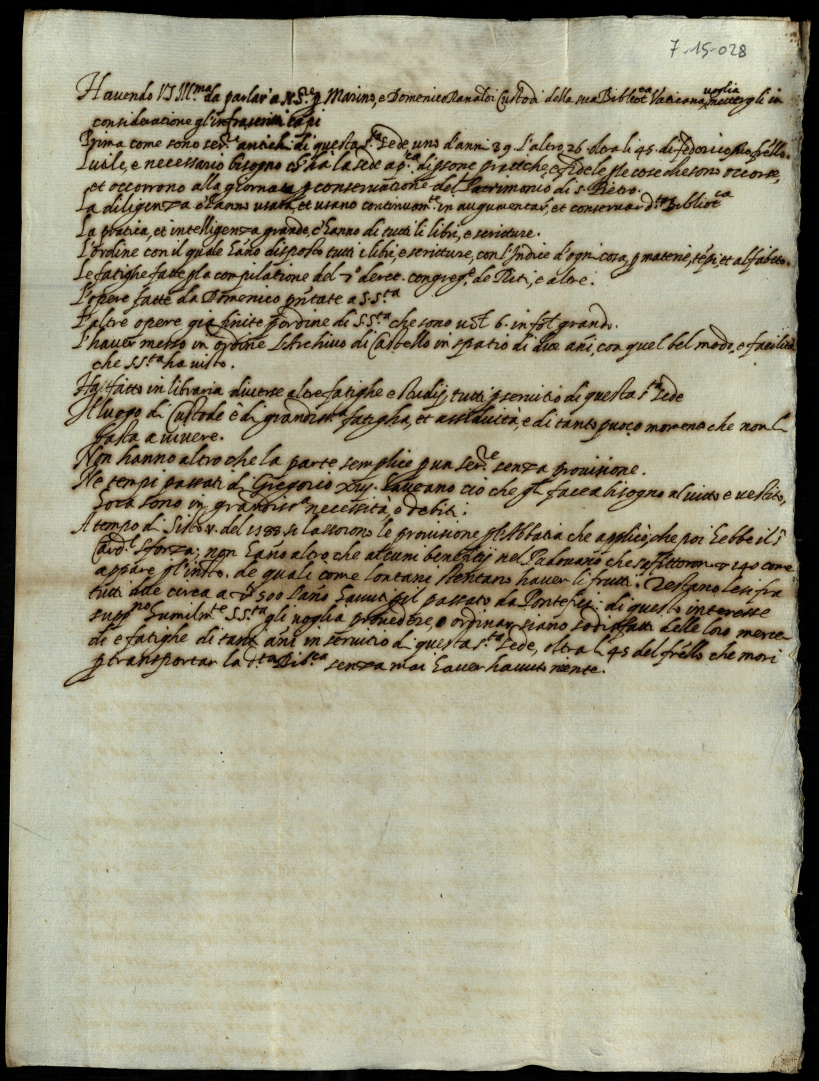 7-15-028
Havendo V.S. Ill.ma da parlar' a N.S.re p Marino, e Domenico Ranaldi Custodi della sua Bibliot.ca Vaticana, voglia mettergli in
consideratione gl'infrascritti capi
Prima come sono ser.ri antichi di questa s.ta Sede, uno d'anni 39. l'altro 26. oltra li 45. di Federico suo frello.
L'utile, e necessario bisogno c'ha la sede ap.ca di psone prattiche, e fidele p le cose che sono occorse,
et occorrono alla giornata p conservatione del Patrimonio di s. Pietro.
La diligenza c'hanno usata, et usano continuam.te in augumentar, et conservar d.ta Bibliot.ca
La pratica, et intelligenza grande, c'hanno di tutti li libri, e scritture.
L'ordine con il quale hano disposto tutti i libri, e scritture, con l'Indice d'ogni cosa, p materie, tepi, et alfabeto.
Le fatighe fatte p la compilatione del decret. congreg.e de Riti, e altre.
L'opere fatte da Domenico pntate a S.S.ta
L'altre opere gia finite p ordine di S.S.ta che sono vol. 6. in fol. grande.
L'haver messo in ordine l'Archivio di Castello in spatio di dice ani, con quel bel modo, e facilità
che S.S.ta ha visto.
Ha fatto in libraria diverse altre fatighe e studij, tutti p servitio di questa s.ta Sede
Il luogo di Custode è di grandiss.a fatigha, et assiduità, e di tanto puoco momento che non li
basta a vivere.
Non hanno altro che la parte semplice p un ser.re senza provisione.
Ne tempi passati di Gregorio xiij. havevano ciò che gli facea bisogno al vitto e vestito,
hora sono in grandiss.a necessità, e debiti.
A tempo di Sisto v. del 1588 si lassorono le provisione p l'Abbatia che applicò, che poi hebbe il s.r
Card.l Sforza; non hano altro che alcuni beneficij nel Padovano che 240 come
appare p l'instr.o de quali come lontani stentano haver li frutti. Restano lesi fra
tutti due circa a 500 l'año havuti pel passato da Pontefici: di questo interesse
supp.no humilm.te S.S.ta gli voglia provedere, o ordinar siano sodisfatti delle loro merce
di e fatighe di tanti ani in servitio di questa s.ta Sede, oltra li 45 del frello che morì
p transportar la d.ta Bib.ca senza mai haver havuto niente.